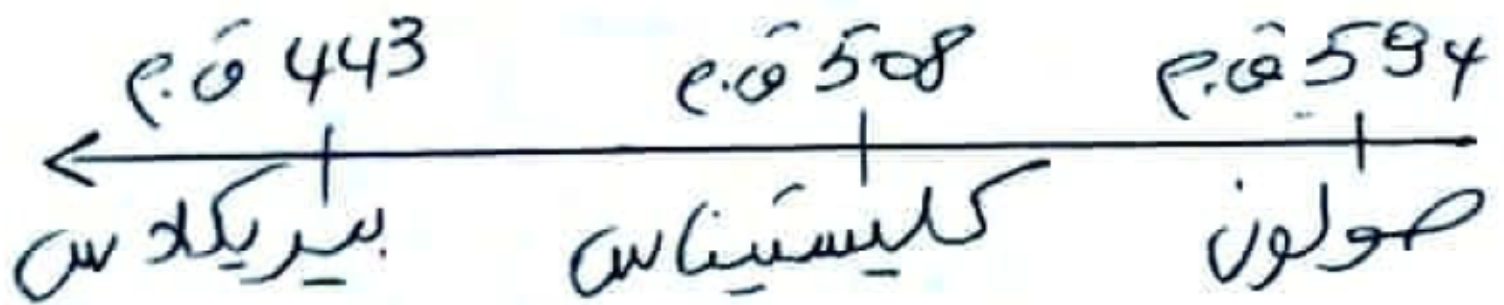 594 ق.م 508 ق.م 443 ق.م
صولون كليستيناس بيريكلادس